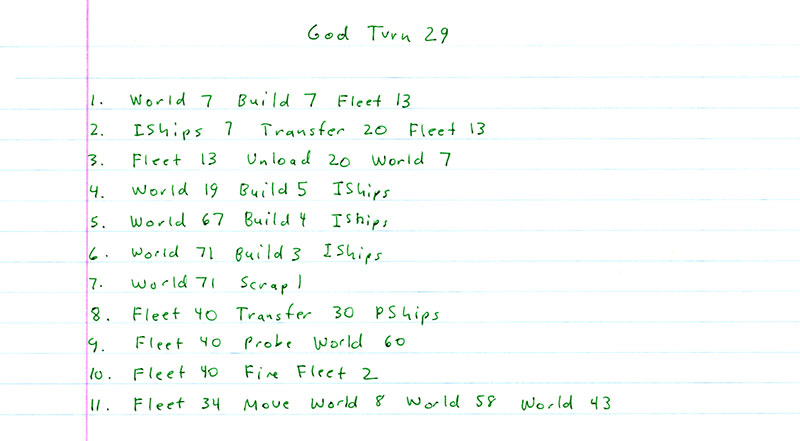 God Turn 29
1. World 7 Build 7 Fleet 13
2. IShips 7 Transfer 20 Fleet 13
3. Fleet 13 Unload 20 World 7
4. World 19 Build 5 IShips
5. World 67 Build 4 IShips
6. World 71 Build 3 IShips
7. World 71 Scrap 1
8. Fleet 40 Transfer 30 PShips
9. Fleet 40 Probe World 60
10. Fleet 40 Fire Fleet 2
11. Fleet 34 Move World 8 World 58 World 43